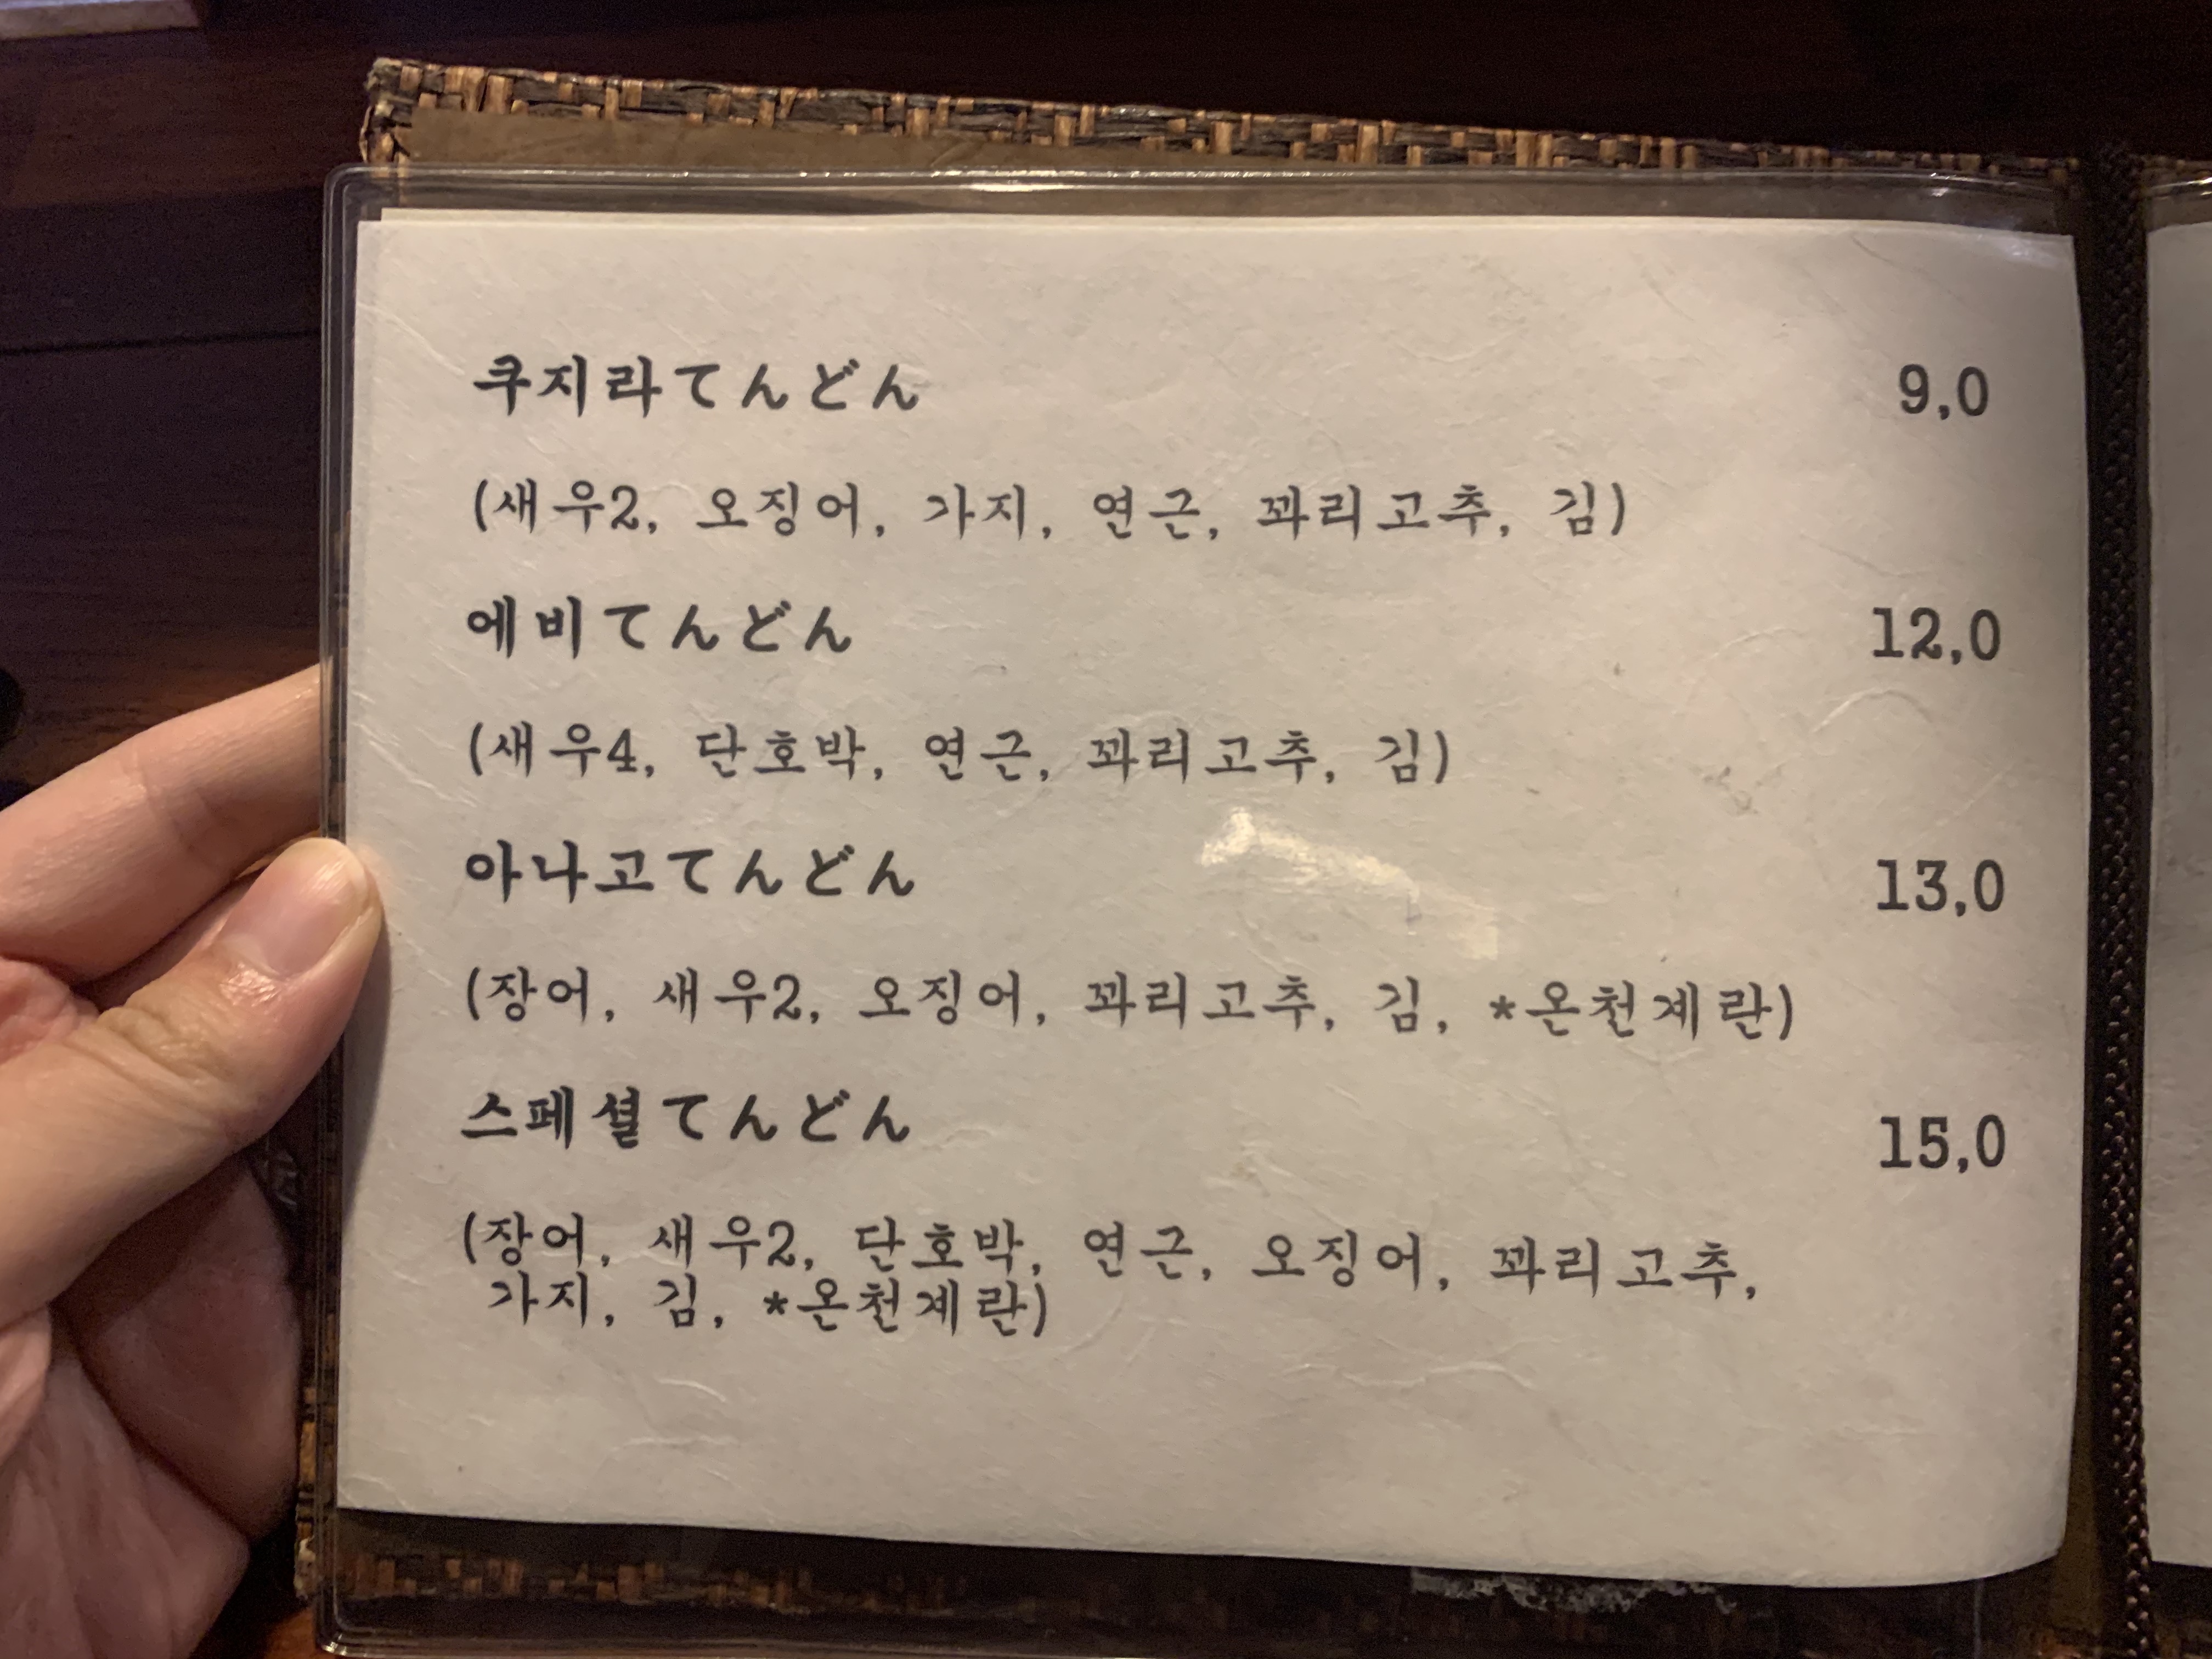 쿠지라てんどん 9,0
(새우2, 오징어, 가지, 연근, 꽈리고추, 김)
에비てんどん 12,0
(새우4, 단호박, 연근, 꽈리고추, 김)
아나고てんどん 13,0
(장어, 새우2, 오징어, 꽈리고추, 김, *온천계란)
스페셜てんどん 15,0
(장어, 새우2, 단호박, 연근, 오징어, 꽈리고추,
가지, 김, *온천계란)